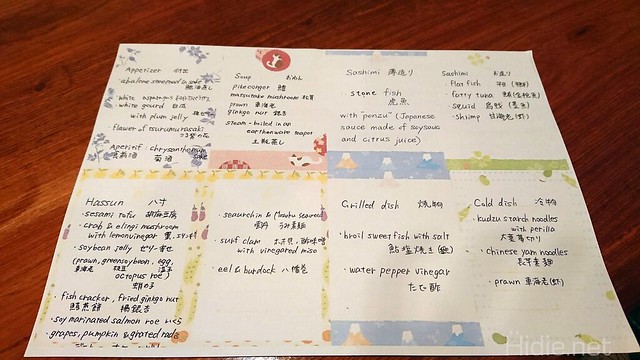 Appetizer
・abalone steamed in sake
・white asparagus
・white gourd 白瓜
with plum jelly
flower of tsurumurasaki
Aperitif chrysanthemum sake
菊酒
Soup
pike conger 鱧
matsutake mushroom 松茸
prawn 車海老
ginkgo nut 銀杏
steam-boiled in an
earthenware teapot
土瓶蒸し
Sashimi 薄造り
・stone fish
虎魚
with ponzu (Japanese
sauce made of soysauce
and citrus juice)
Sashimi お造り
・flat fish 平
・fatty tuna
・squid 烏賊
・shrimp 甘海老
Hassun 八寸
・sesami tofu 胡麻豆腐
・crab & elingi mushroom
with lemon vinegar
・soybean jelly ゼリー寄せ
(prawn, green soybean, egg,
車海老 枝豆 温子
octopus roe)
蛸の子
・fish cracker, fried ginkgo nut
揚銀杏
・soy marinated salmon roe いくら
・grapes, pumpkin & grated radish
・seaurchin & Mozuku seaweed
・surf clam
with vinegared miso
・eel & burdock 八幡巻
Grilled dish 焼物
・broil sweet fish with salt
鮎塩焼き
・water pepper vinegar
たで酢
Cold dish 冷物
・kudzu starch noodles
with perilla
大葉葛切り
・chinese yam noodles
長芋素麺
・prawn 車海老
Hidie.net